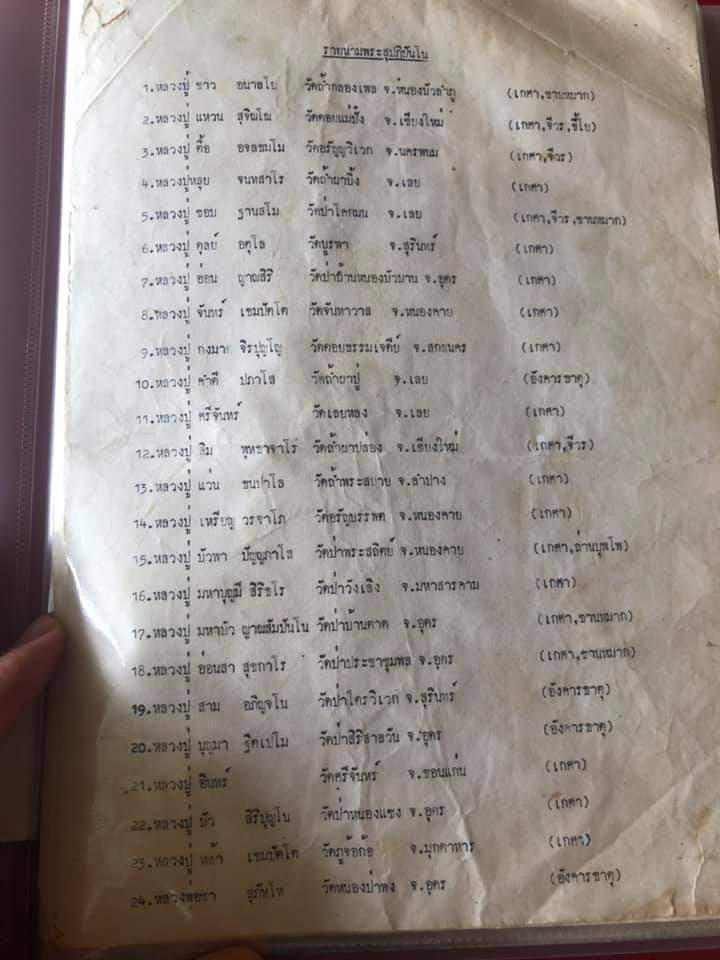 รายนามพระสุปฏิปันโน
1.หลวงปู่ ขาว อนาลโย วัดถ้ำกลองเพล จ.หนองบัวลำภู (เกศา,ชานหมาก)
2.หลวงปู่ แหวน สุจิณโณ วัดดอยแม่ปั๋ง จ.เชียงใหม่ (เกศา,จีวร,ขี้โย)
3.หลวงปู่ ตื้อ อจลธมโม วัดอรัญญวิเวก จ.นครพนม (เกศา,จีวร)
4.หลวงปู่หลุย จนทสาโร วัดถ้ำผาบิ้ง จ.เลย (เกศา)
5.หลวงปู่ ชอบ ฐานสโม วัดป่าโคกมน จ.เลย (เกศา,จีวร,ชานหมาก)
6.หลวงปู่ ดุลย์ อตุโล วัดบูรพา จ.สุรินทร์ (เกศา)
7.หลวงปู่ อ่อน ญาณสิริ วัดป่าบ้านหนองบัวบาน จ.อุดร (เกศา)
8.หลวงปู่ จันทร์ เขมปัตโต วัดจันทาวาส จ.หนองคาย (เกศา)
9.หลวงปู่ กงมาศ จิรปุญโญ วัดดอยธรรมเจดีย์ จ.สกลนคร (เกศา)
10.หลวงปู่ คำดี ปภาโส วัดถ้ำผาปู่ จ.เลย (อังคารธาตุ)
11.หลวงปู่ ศรีจันทร์ วัดเลยหลง จ.เลย (เกศา)
12.หลวงปู่ สิม พุทธาจาโร วัดถ้ำผาปล่อง จ.เชียงใหม่ (เกศา,จีวร)
13.หลวงปู่ แว่น ธนปาโล วัดถ้ำพระสบาย จ.ลำปาง (เกศา)
14.หลวงปู่ เหรียญ วรจาโภ วัดอรัญบรรพต จ.หนองคาย (เกศา)
15.หลวงปู่ บัวพา ปัญญภาโส วัดป่าพระสถิตย์ จ.หนองคาย (เกศา,ล่านบุพโพ)
16.หลวงปู่ มหาบุญมี สิริธโร วัดป่าวังเลิง จ.มหาสารคาม (เกศา)
17.หลวงปู่ มหาบัว ญาณสัมปันโน วัดป่าบ้านตาด จ.อุดร (เกศา,ชานหมาก)
18.หลวงปู่ อ่อนสา สุขกาโร วัดป่าประชาชุมพล จ.อุดร (เกศา,ชานหมาก)
19.หลวงปู่ สาม อภิญจโน วัดป่าไตรวิเวก จ.สุรินทร์ (อังคารธาตุ)
20.หลวงปู่ บุญมา ฐิตเปโม วัดป่าสิริสาลวัน จ.อุดร (อังคารธาตุ)
21.หลวงปู่ อินทร์ วัดศรีจันทร์ จ.ขอนแก่น (เกศา)
22.หลวงปู่ บัว สิริปุญโน วัดป่าหนองแซง จ.อุดร (เกศา)
23.หลวงปู่ หล้า เขมปัตโต วัดภูจ้อก้อ จ.มุกดาหาร (เกศา)
24.หลวงพ่อชา สุภัทโท วัดหนองป่าพง จ.อุดร (อังคารธาตุ)